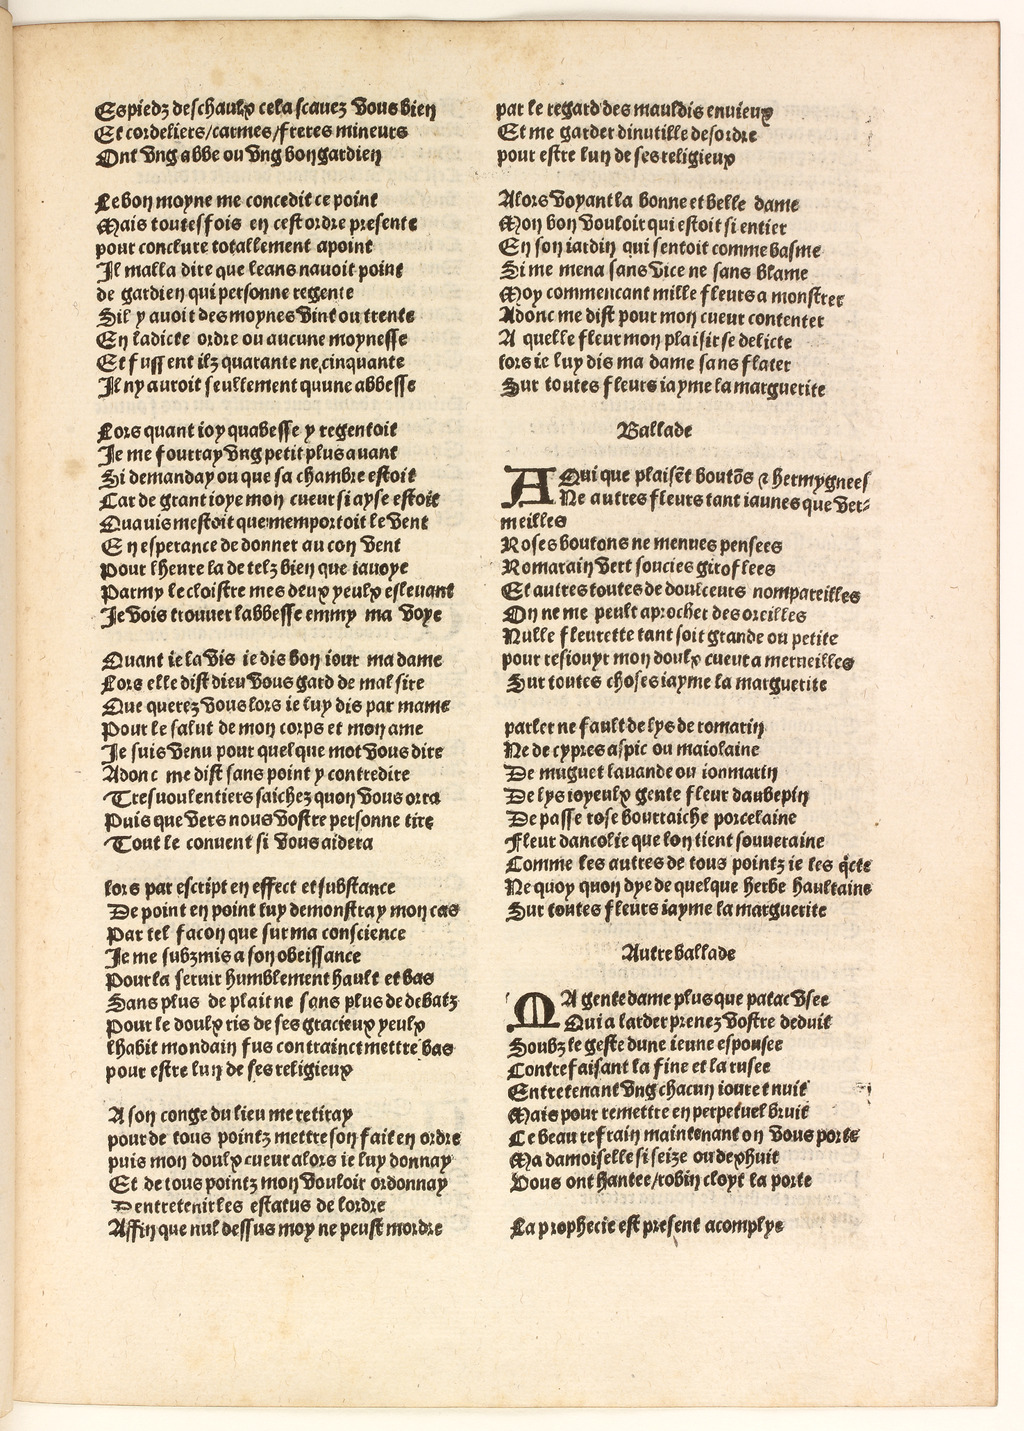 Es piedz deschaulx cela scauez vous bien
Et cordeliers/carmes/freres mineurs
Ont vng abbe ou vng bon gardien
Le bon moyne me concedit ce point
Mais toutesfois en cest ordre presente
pour conclure totallement apoint
Il malla dire que leans nauoit point
de gardien qui personne regente
Sil y auoit des moynes vint ou trente
En ladicte ordre ou aucune moynesse
Et fussent ilz quarante ne cinquante
Il ny auroit seullement quune abbesse
Lors quant ioy quabesse y regentoit
Je me fourray vng petit plus auant
Si demanday ou que sa chambre estoit
Car de grant ioye mon cueur si ayse estoit
Quauis mestoit que memportoit le vent
En esperance de donner au con vent
Pour lheure la de telz bien que iauoye
Parmy le cloistre mes deux yeulx esleuant
Je vois trouuer labbesse emmy ma voye
Quant ie la vis ie dis bon iour ma dame
Lors elle dist dieu vous gard de mal sire
Que querez vous lors ie luy dis par mame
Pour le salut de mon corps et mon ame
Je suis venu pour quelque mot vous dire
Adonc me dist sans point y contredire
Tresuoulentiers saichez quon vous orra
Puis que vers nous vostre personne tire
Tout le conuent si vous aidera
lors par escript en effect et substance
De point en point luy demonstray mon cas
Par tel facon que sur ma conscience
Je me subzmis a son obeissance
Pour la seruir humblement hault et bas
Sans plus de plait ne sans plus de debatz
Pour le doulx ris de ses gracieux yeulx
lhabit mondain fus contrainct mettre bas
pour estre lun de ses religieux
A son conge du lieu me retiray
pour de tous pointz mettre son fait en ordre
puis mon doulx cueur alors ie luy donnay
Et de tous pointz mon vouloir ordonnay
Dentretenir les estatus de lordre
Affin que nul dessus moy ne peust mordre
par le regard des mauldis enuieux
Et me garder dinutille desordre
pour estre lun de ses religieux
Alors voyant la bonne et belle dame
Mon bon vouloir qui estoit si entier
En son iardin qui sentoit comme basme
Si me mena sans vice ne sans blame
Moy commencant mille fleurs a monstrer
Adonc me dist pour mon cueur contenter
A quelle fleur mon plaisir se delicte
lors ie luy dis ma dame sans flater
Sur toutes fleurs iayme la marguerite
Ballade
A Qui que plaisẽt boutõs & hermygnees
Ne autres fleurs tant iaunes que ver-
meilles
Roses boutons ne menues pensees
Romarain vert soucies giroflees
Et autres toutes de doulceurs nompareilles
On ne me peult aprocher des oreilles
Nulle fleurette tant soit grande ou petite
pour resiouyr mon doulx cueur a merueilles
Sur toutes choses iayme la marguerite
parler ne fault de lys de romarin
Ne de cypres aspic ou maiolaine
De muguet lauande ou ionmarin
De lys ioyeulx gente fleur daubepin
De passe rose bourraiche porcelaine
Fleur dancolie que lon tient souueraine
Comme les autres de tous pointz ie les q̃cte
Ne quoy quon dye de quelque herbe haultaine
Sur toutes fleurs iayme la marguerite
Autre ballade
MA gente dame plus que patac vsee
Qui a larder prenez vostre deduit
Soubz le geste dune ieune espousee
Contrefaisant la fine et la rusee
Entretenant vng chacun iour et nuit
Mais pour remettre en perpetuel bruit
Ce beau refrain maintenant on vous porte
Ma damoiselle si seize ou dexhuit
Vous ont hantee/robin cloyt la porte
La prophecie est present acomplye